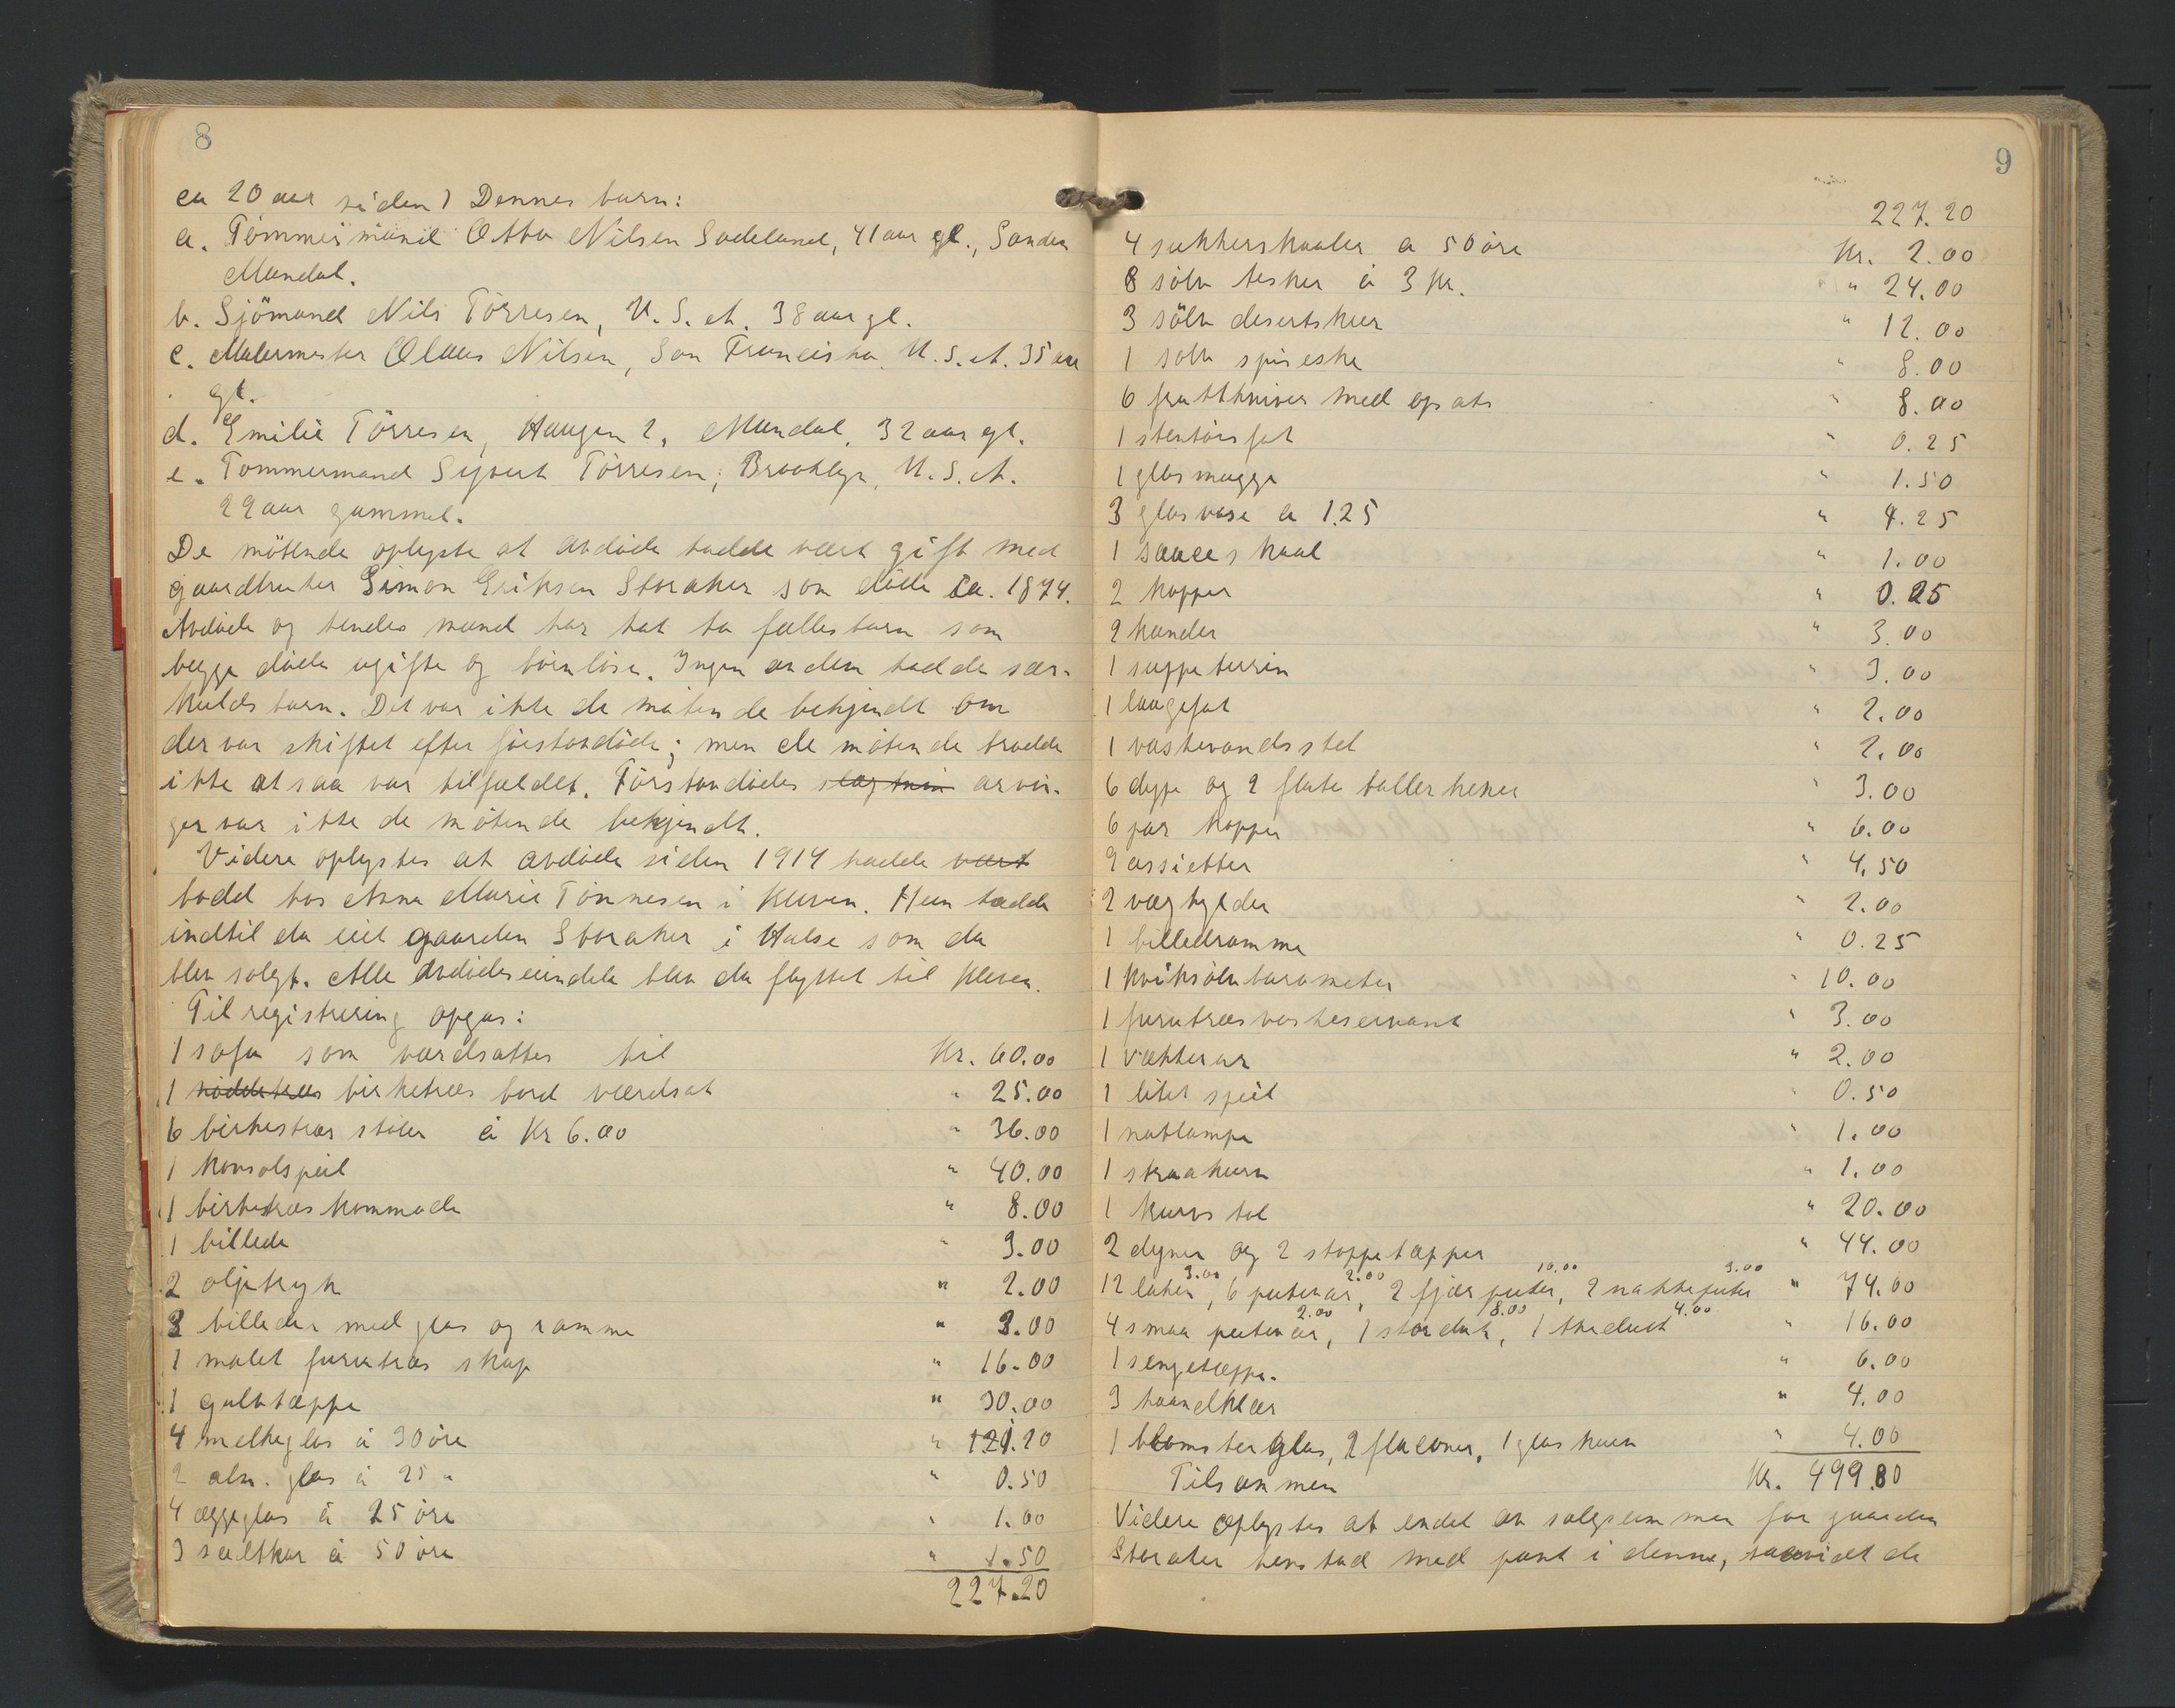 8
ca 20 aar siden) Dennes barn:
a. Tömmermand Otto Nilsen Sodeland, 41 aar gl., Sanden
Mandal.
b. Sjömand Nils Törresen, U.S.A. 38 aar gl.
c. Malermester Olaus Nilsen, San Francisko, U.S.A. 35 aar
gl.
d. Emilie Törresen, Haugen 2, Mandal, 32 aar gl.
e. Tömmermand Syvert Törresen, Brooklyn, U.S.A.
29 aar gammel.
De mötende oplyste at avdöde hadde vært gift med
gaardbruker Simon Eriksen Storaker som döde ca. 1874.
Avdöde og hendes mand har hat to fælles barn som
begge döde ugifte og börnlöse. Ingen av dem hadde sær-
kulds barn. Det var ikke de mötende bekjendt om
der var skiftet efter förstavdöde; men de mötende trodde
ikke at saa var tilfældet. Förstavdödes arvin-
ger var ikke de mötende bekjendt.
Videre oplystes at avdöde siden 1914 hadde vært
bodd hos Anna Marie Tönnesen i Kleven. Hun hadde
indtil da eiet gaarden Storaker i Halse som da
blev solgt. Alle avdödes eiendele blev da flyttet til Kleven.
Til registrering opgas:
1 sofa som værdsattes til Kr. 60.00
1 nöddetræs birketræs bord værdsat " 25.00
6 birketræs stoler à Kr 6.00 " 36.00
1 konsolspeil " 40.00
1 birketræs kommode " 8.00
1 billede " 3.00
2 oljetryk " 2.00
3 billeder med glas og ramme " 3.00
1 malet furutræs skap " 16.00
1 gulvtæppe " 30.00
4 melkeglas à 30 öre " 1.20
2 alm. glas à 25 " " 0.50
4 æggeglas à 25 öre " 1.00
3 saltkar à 50 öre " 1.50
227.20
9
227.20
4 sukkerskaaler a 50 öre Kr. 2.00
8 sölv teskeer à 3 kr. " 24.00
3 sölv desertskeer " 12.00
1 sölv spiseske " 8.00
6 fruktkniver med opsats " 8.00
1 stentöisfat " 0.25
1 glasmugge " 1.50
3 glasvase a 1.25 " 4.25
1 sauceskaal " 1.00
2 kopper " 0.25
2 kander " 3.00
1 suppeterrin " 3.00
1 laagefat " 2.00
1 vaskevandsstel " 2.00
6 dype og 2 flate tallerkener " 3.00
6 par kopper " 6.00
9 assietter " 4.50
2 væghylder " 2.00
1 billedramme " 0.25
1 kviksölvbarometer " 10.00
1 furutræs vaskeservant " 3.00
1 vækkerur " 2.00
1 litet speil " 0.50
1 natlampe " 1.00
1 straakurv " 1.00
1 kurvstol " 20.00
2 dyner og 2 stoppetæpper " 44.00
3.00 2.00 10.00 3.00
12 laken, 6 putevar, 2 fjærputer, 2 nakkeputer " 74.00
2.00 8.00 4.00
4 smaa putevar, 1 stor duk, 1 theduk " 16.00
1 sengetæppe. " 6.00
3 haandklær " 4.00
1 blomsterglas, 2 flaconer, 1 glaskurv " 4.00
Tilsammen Kr. 499.80
Videre oplystes at endel av salgssummen for gaarden
Storaker henstod med pant i denne, saavidt de